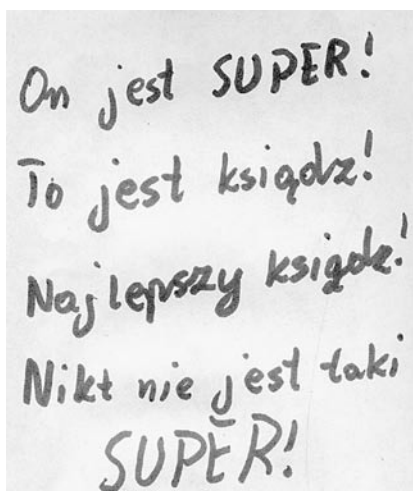 On jest SUPER!
To jest ksiądz!
Najlepszy ksiądz!
Nikt nie jest taki
SUPER!